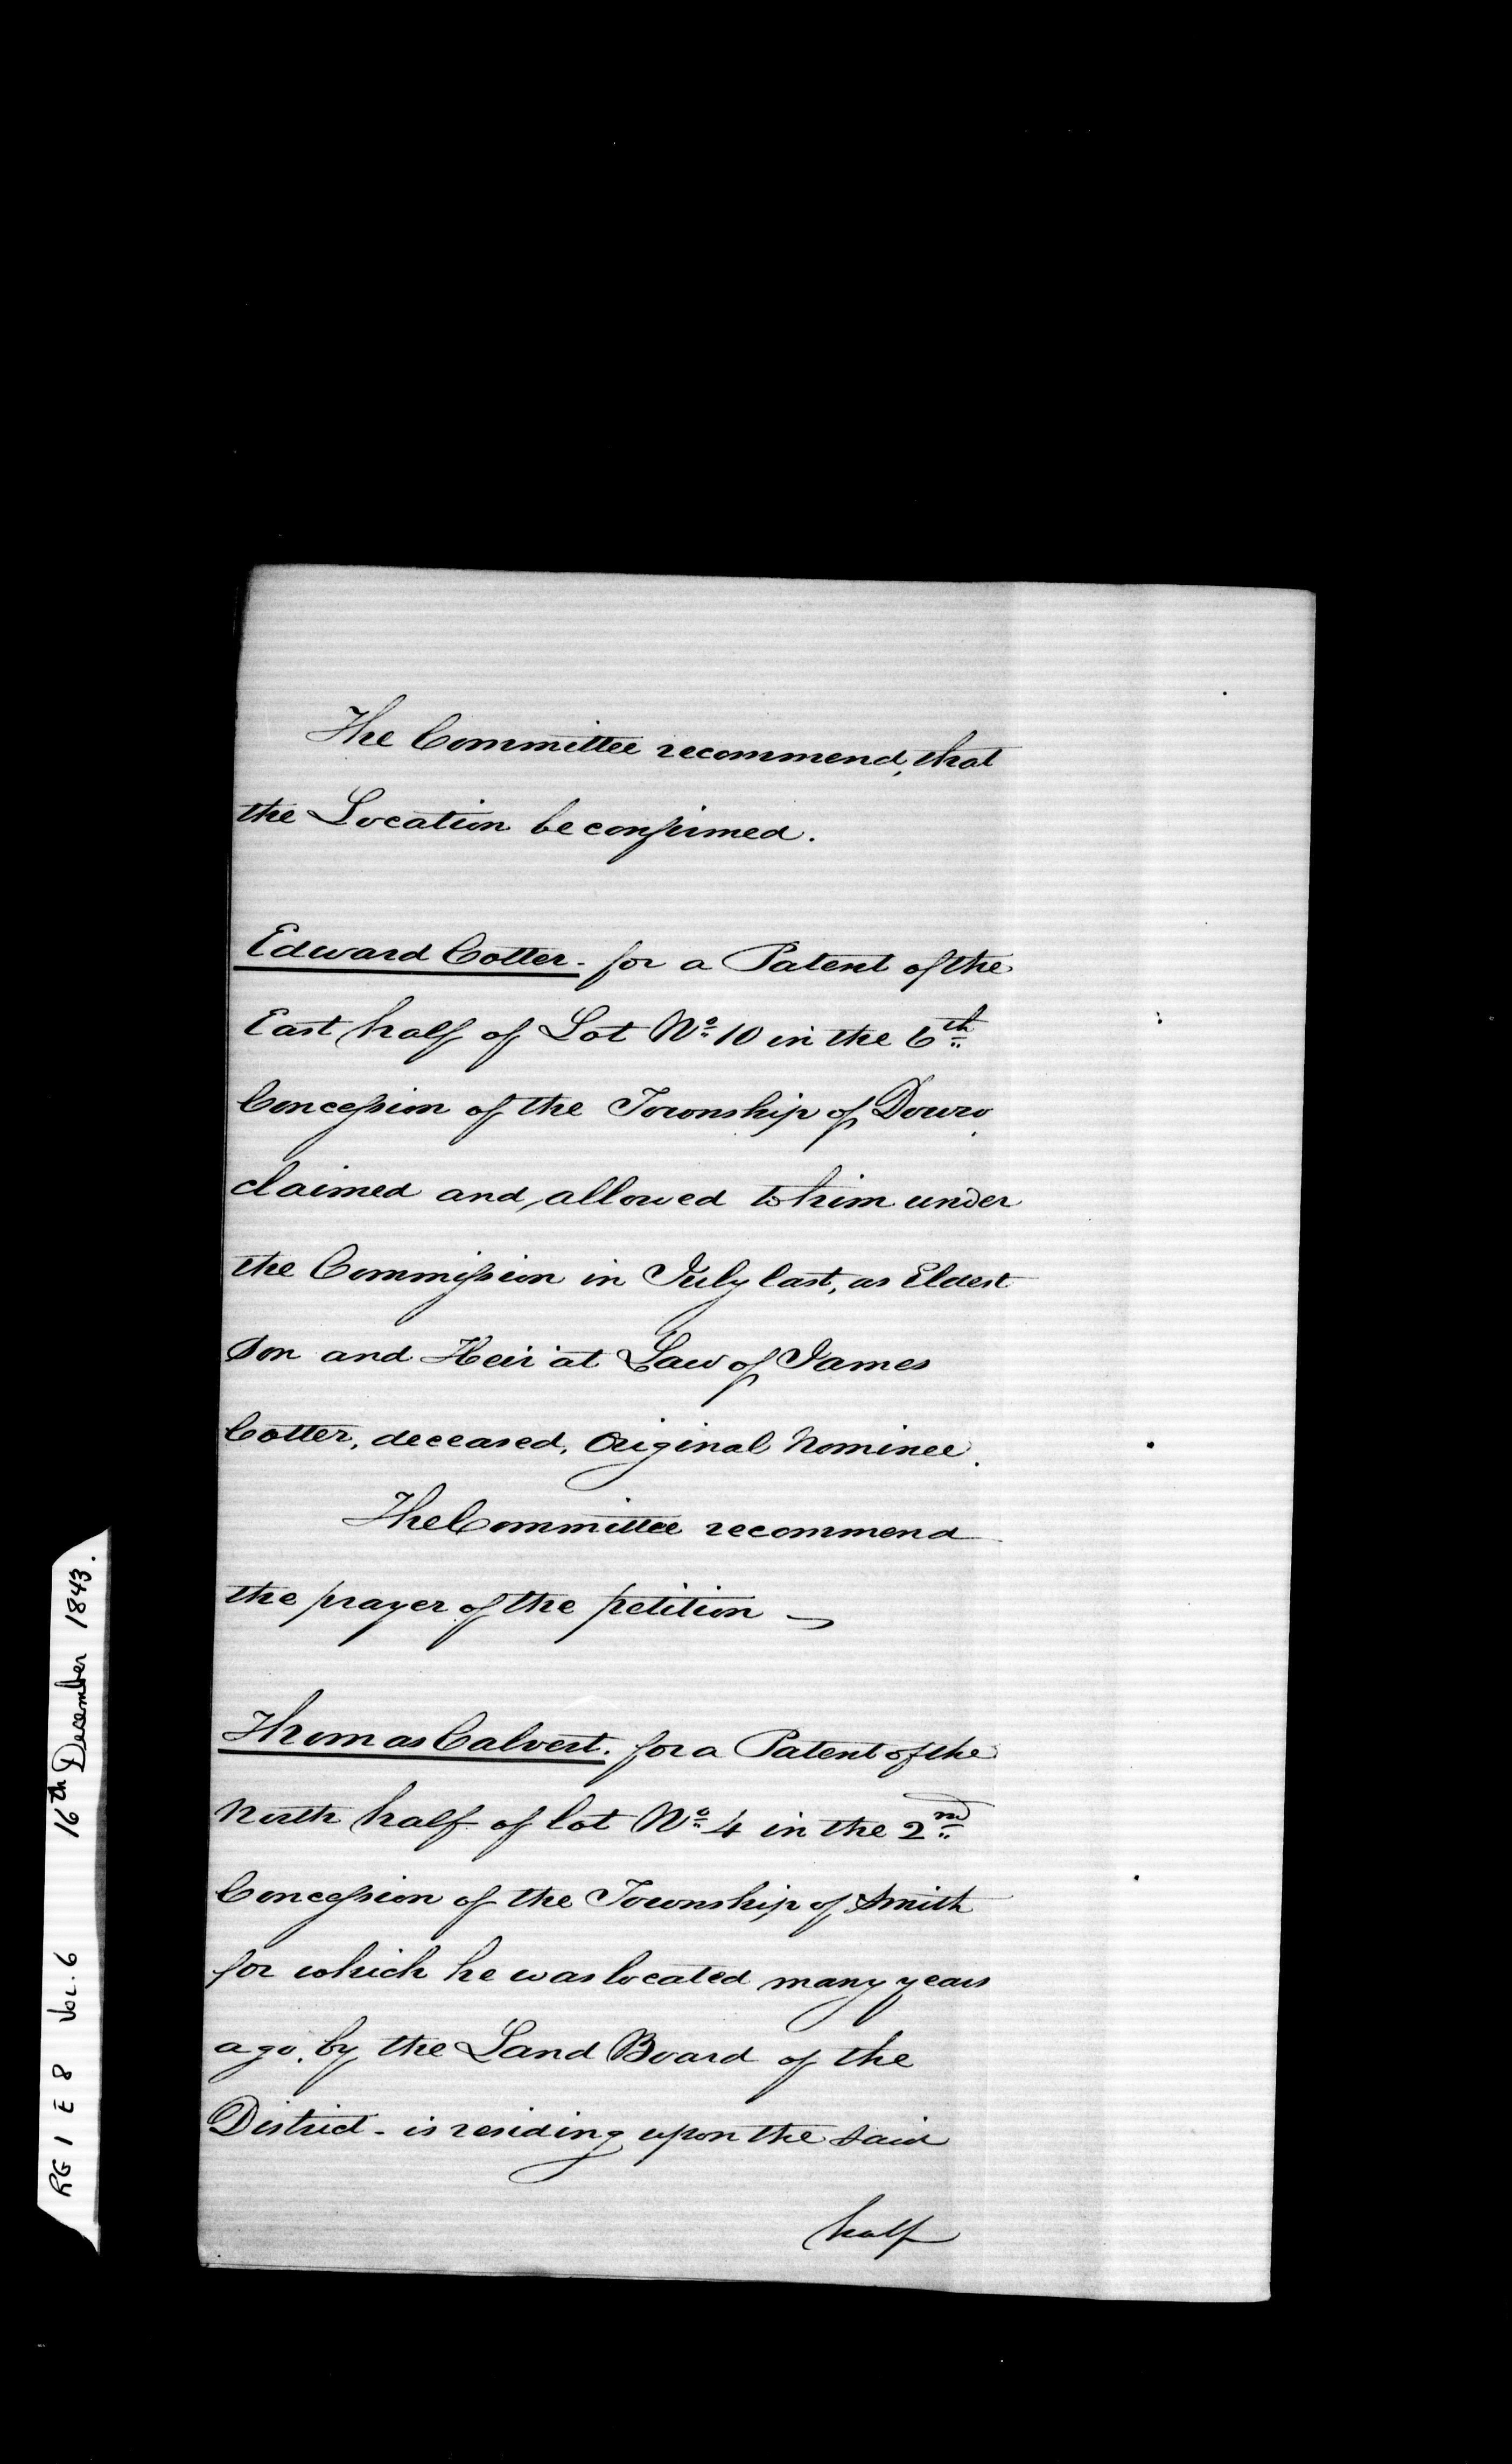 The Committee recommend, that
the Location be confirmed.
Edward Cotter - for a Patent of the
East half of Lot No. 10 in the 6th
Concession of the Township of Douro
claimed and allowed to him under
the Commission in July last, as Eldest
Son and Heir at Law of James
Cotter, deceased, Original Nominee.
The Committee recommend
the prayer of the petition —
Thomas Calvert. for a Patent of the
North half of lot No. 4 in the 2nd
Concession of the Township of Smith
for which he was located many years
ago, by the Land Board of the
District - is residing upon the said
half
RG 1 E 8 Vol. 6 16th December 1843.